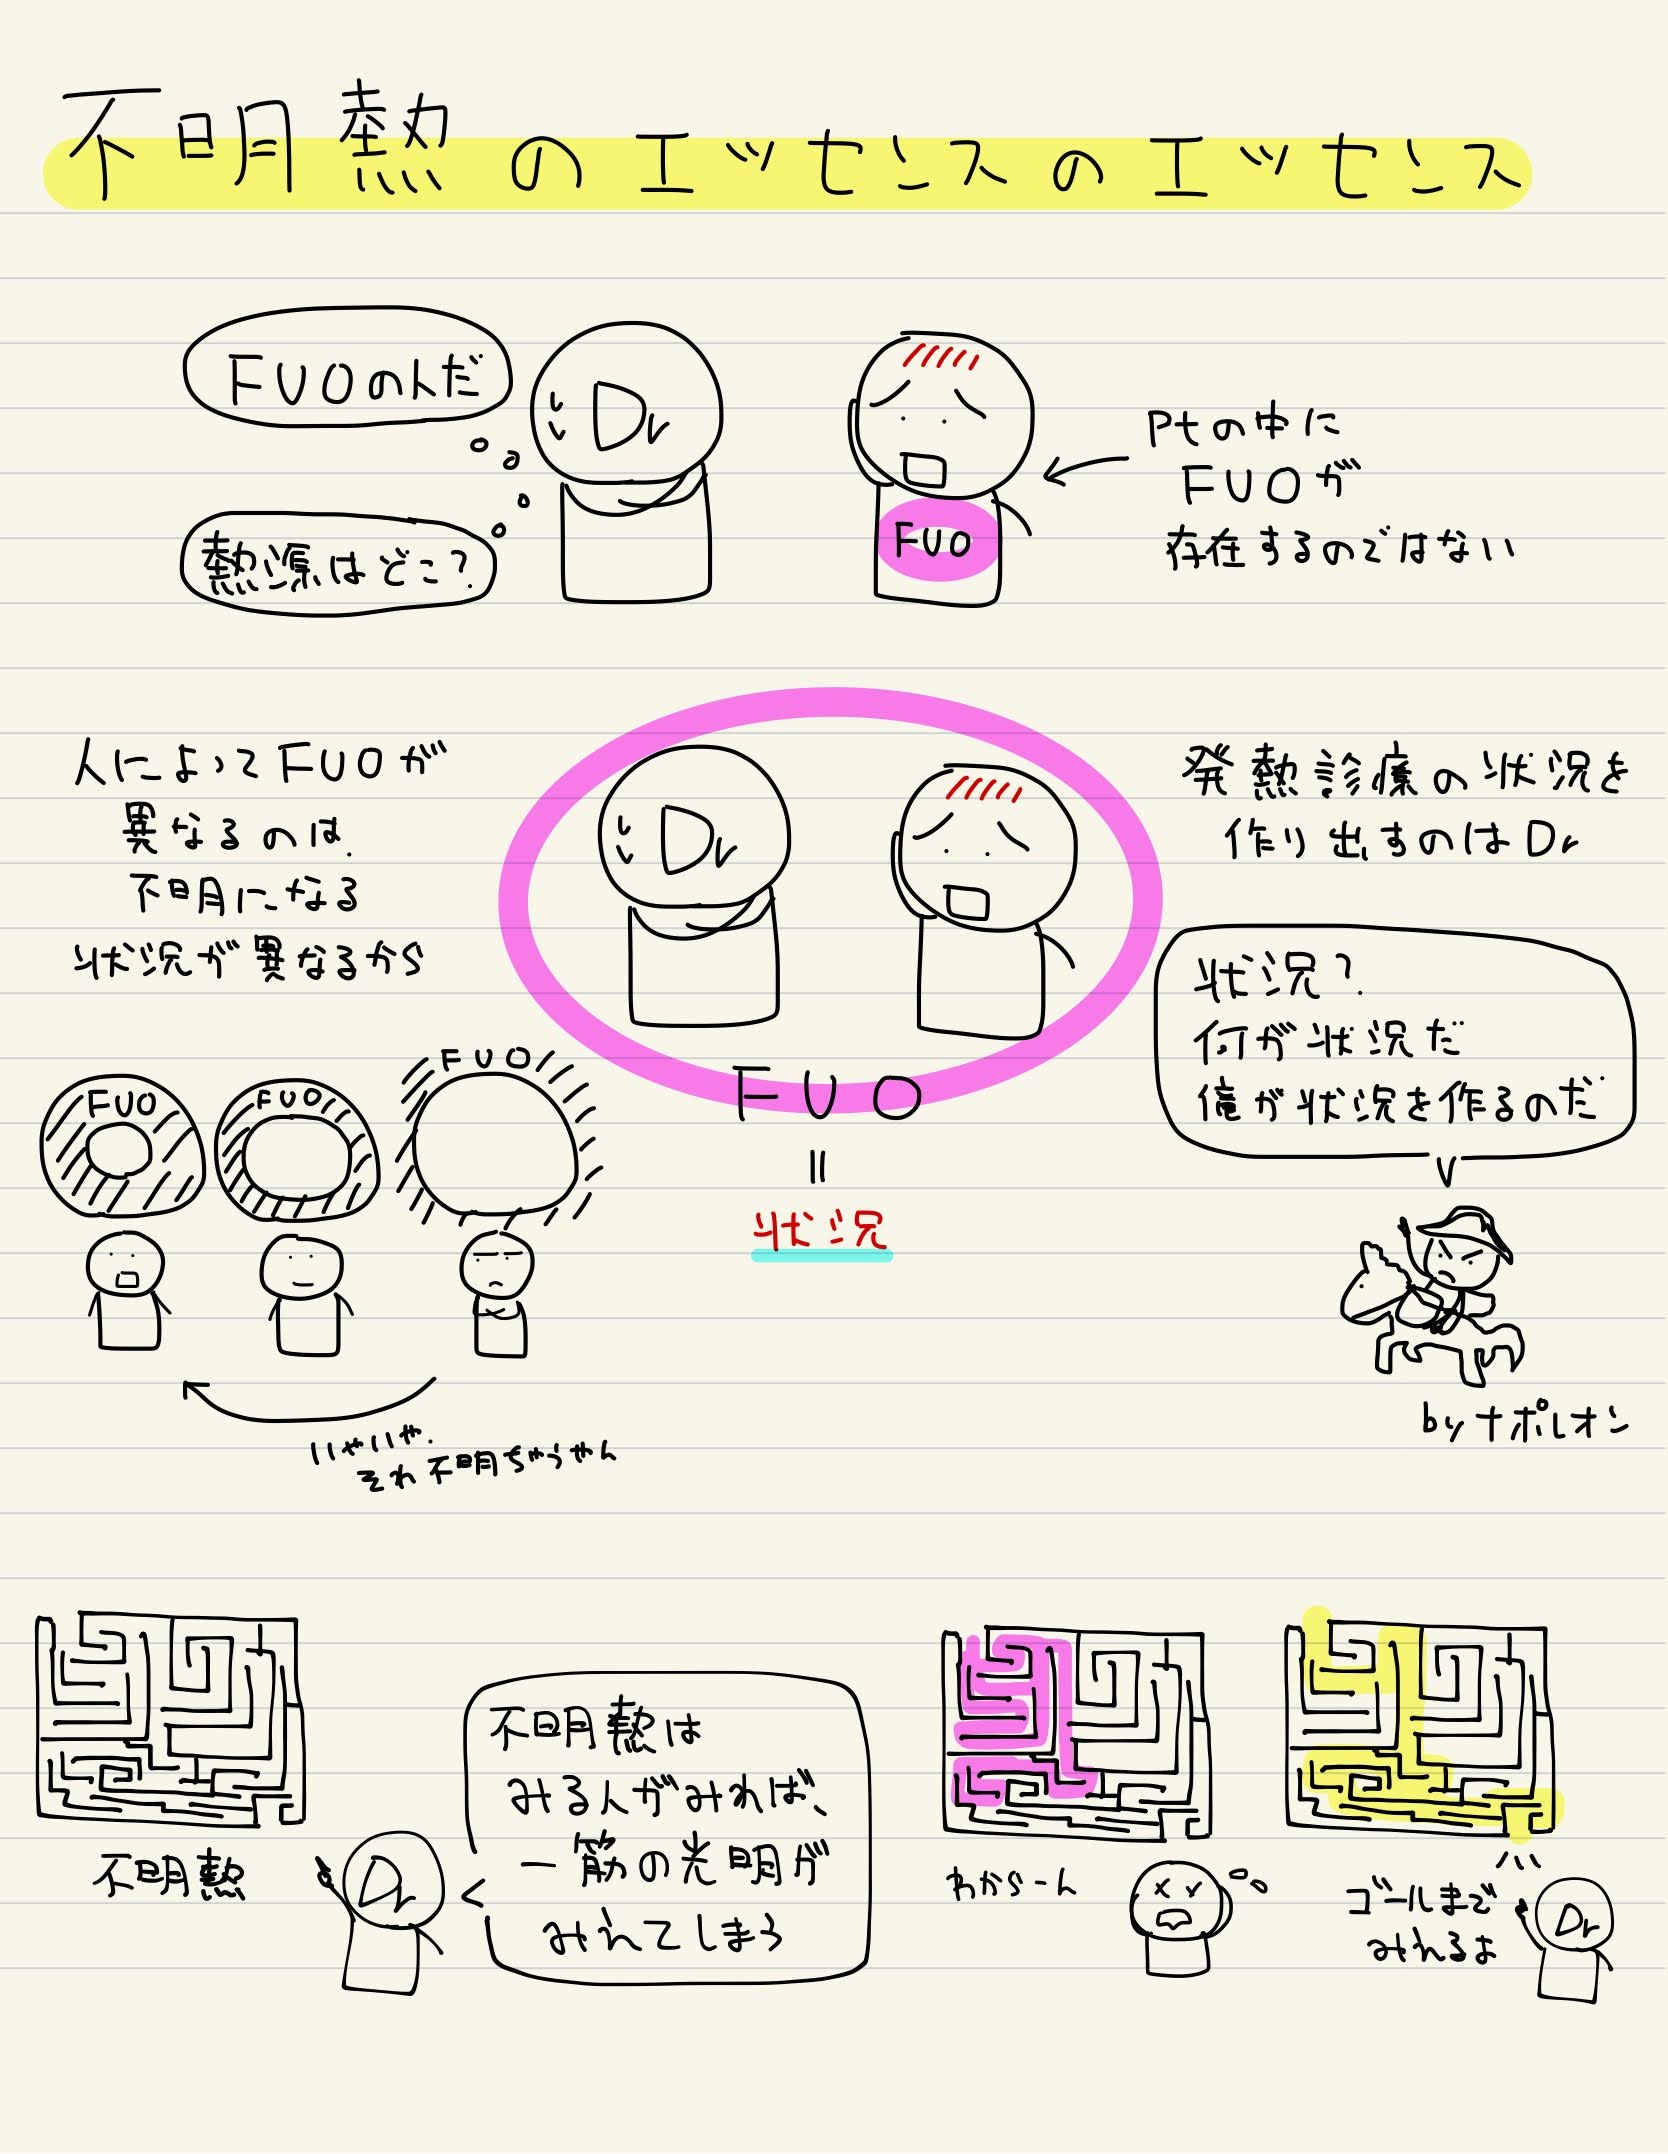 不明熱のエッセンスのエッセンス
FUOの人だ
熱源はどこ?
Dr
FUO
Ptの中に
FUOが
存在するのではない
人によってFUOが
異なるのは
不明になる
状況が異なるから
Dr
発熱診療の状況を
作り出すのはDr
状況?
何が状況だ
俺が状況を作るのだ
byナポレオン
FUO
=
状況
FUO
FUO
FUO
いやいや
それ不明ちゃうやん
不明熱
Dr
不明熱は
みる人がみれば、
一筋の光明が
みれてしまう
わからーん
ゴールまで
みれるよ
Dr